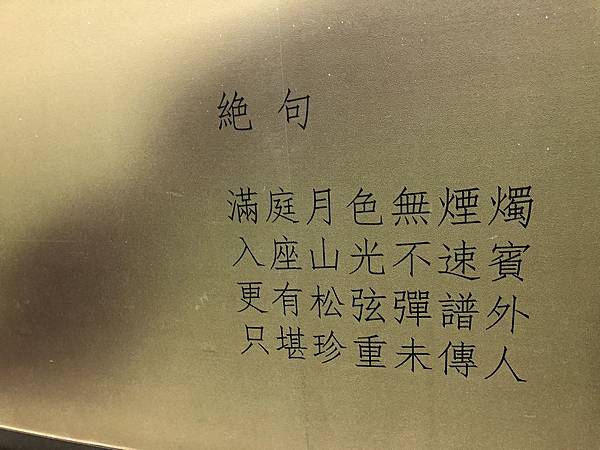 絕句
滿庭月色無煙燭
入座山光不速賓
更有松弦彈譜外
只堪珍重未傳人